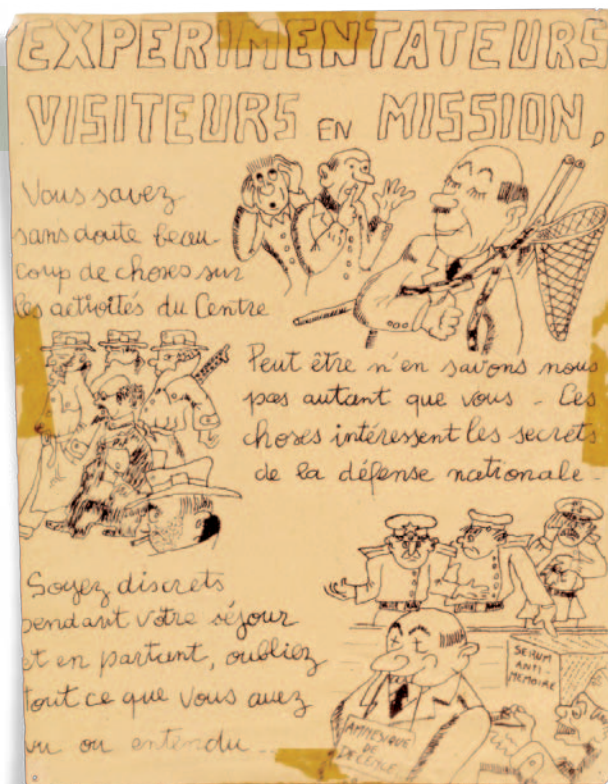 EXPERIMENTATEURS
VISITEURS EN MISSION,
Vous savez
sans doute beau-
coup de choses sur
les activités du Centre
Peut être n'en savons nous
pas autant que vous - Ces
choses intéressent les secrets
de la défense nationale -
Soyez discrets
pendant votre séjour
et en partant, oubliez
tout ce que vous avez
vu ou entendu...
SERUM
ANTI
MEMOIRE
AMNESIQUE
DE